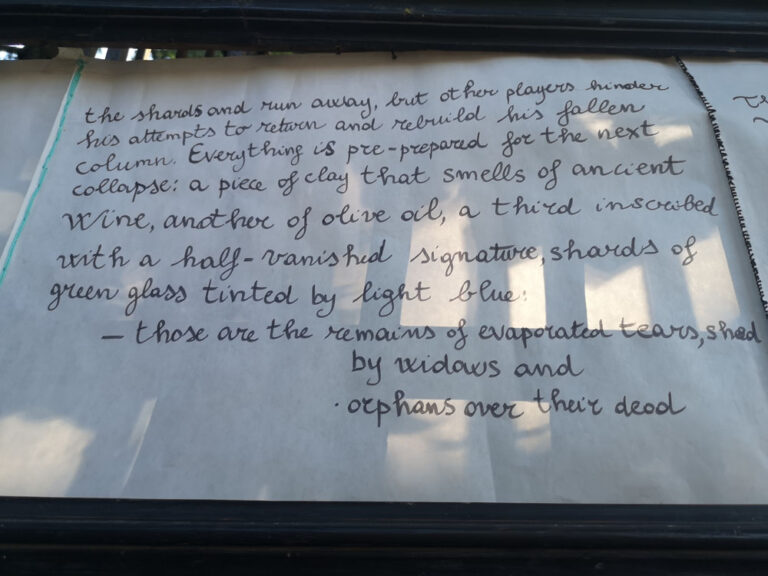 the shards and run away, but other players hinder
his attempts to return and rebuild his fallen
column. Everything is pre-prepared for the next
collapse: a piece of clay that smells of ancient
wine, another of olive oil, a third inscribed
with a half-vanished signature, shards of
green glass tinted by light blue:
– those are the remains of evaporated tears, shed
by widows and
orphans over their dead